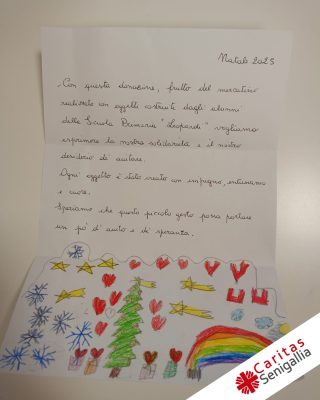 Natale 2025
Con questa donazione, frutto del mercatino
realizzato con oggetti costruiti dagli alunni
della Scuola Primaria "Leopardi" vogliamo
esprimere la nostra solidarietà e il nostro
desiderio di aiutare.
Ogni oggetto è stato creato con impegno, entusiasmo
e cuore.
Speriamo che questo piccolo gesto possa portare
un po' di aiuto e di speranza.
Caritas
Senigallia